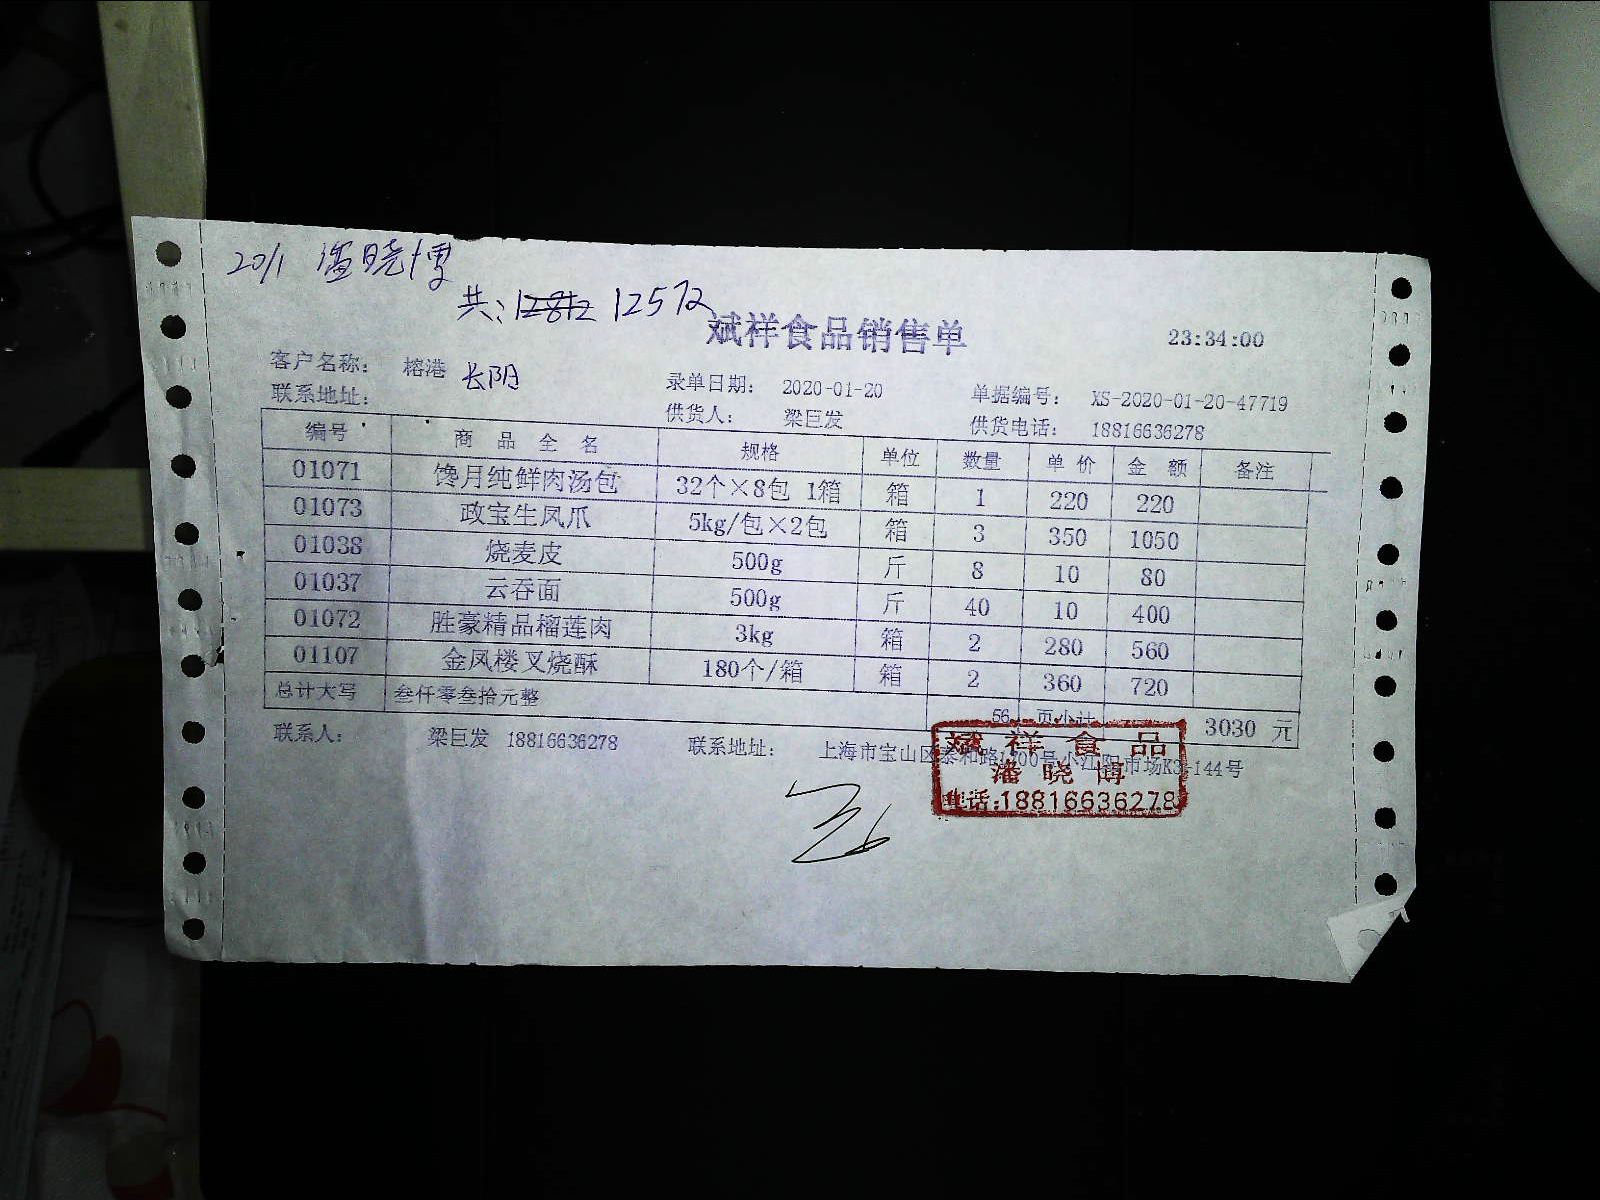 20/1 潘晓博
共:12812 12572
斌祥食品销售单 23:34:00
客户名称: 榕港 长阳 录单日期: 2020-01-20 单据编号: XS-2020-01-20-47719
联系地址: 供货人: 梁巨发 供货电话: 18816636278
编号 商品全名 规格 单位 数量 单价 金额 备注
01071 馋月纯鲜肉汤包 32个×8包 1箱 箱 1 220 220
01073 政宝生凤爪 5kg/包×2包 箱 3 350 1050
01038 烧麦皮 500g 斤 8 10 80
01037 云吞面 500g 斤 40 10 400
01072 胜豪精品榴莲肉 3kg 箱 2 280 560
01107 金凤楼叉烧酥 180个/箱 箱 2 360 720
总计大写 叁仟零叁拾元整 56 页小计 3030 元
联系人: 梁巨发 18816636278 联系地址: 上海市宝山区泰和路1700号小江阳市场K3-144号
斌祥食品
潘晓博
电话:18816636278